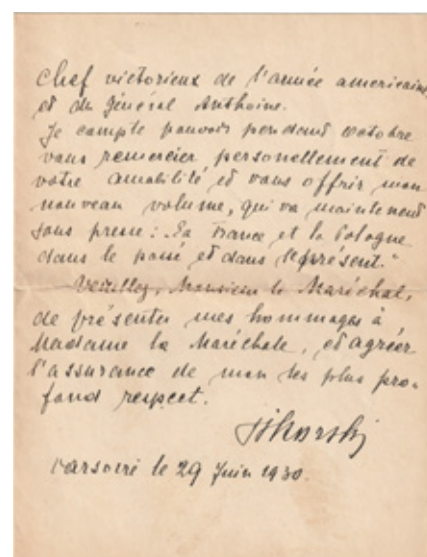 Chef victorieux de l'armée americaine,
et du Général Anthoine.
Je compte pouvoir pendant octobre
vous remercier personellement de
votre amabilité et vous offrir mon
nouveau volume, qui va maintenant
sous presse: „La France et la Pologne
dans le passé et dans le présent."
Veuillez, Monsieur le Maréchal,
de présenter mes hommages à
Madame la Maréchale, et agréer
l'assurance de mon les plus pro-
fond respect.
Sikorski
Varsovie le 29 Juin 1930.